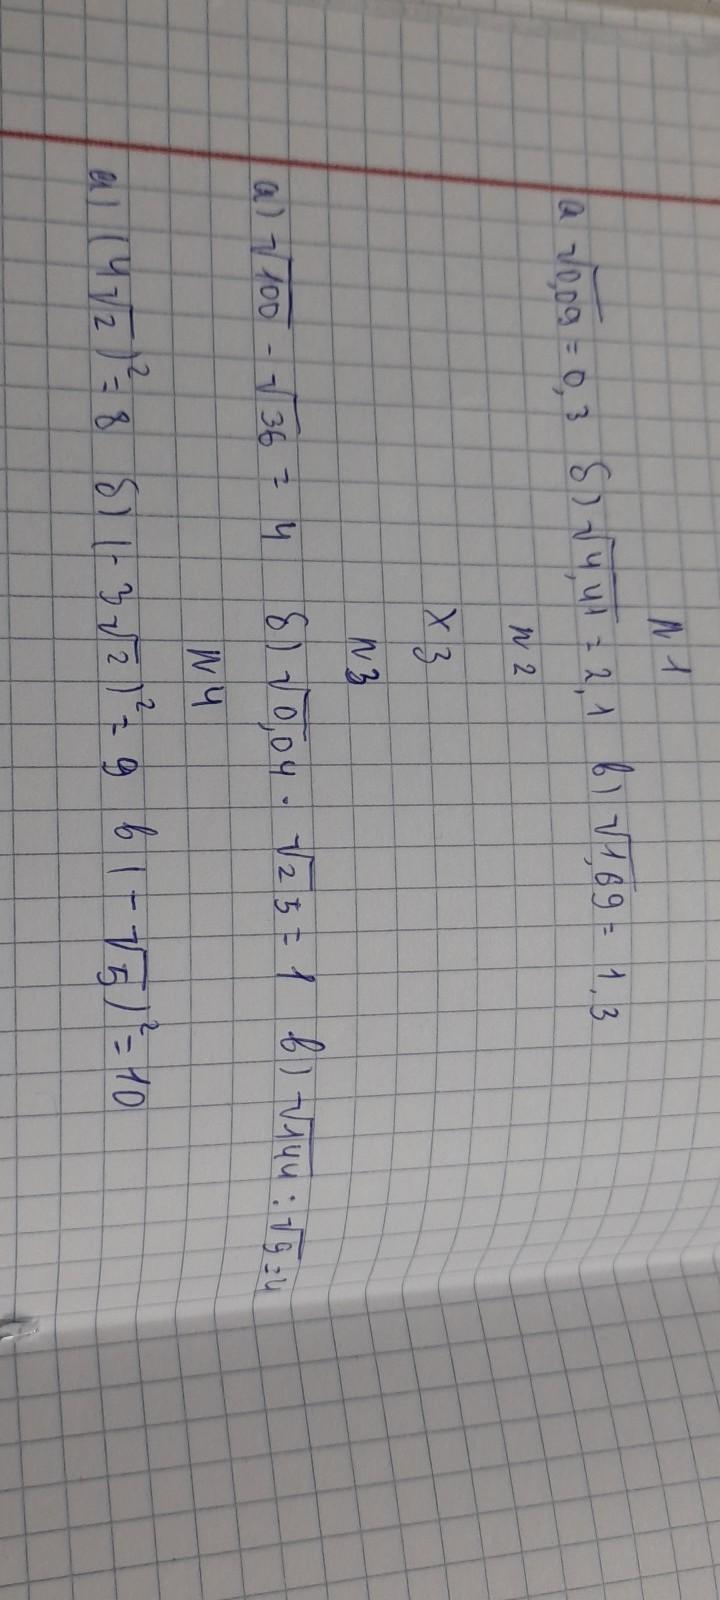 N1
а √0,09 = 0,3 б) √4,41 = 2,1 в) √1,69 = 1,3
N2
х 3
N3
а) √100 - √36 = 4 б) √0,04 · √25 = 1 в) √144 : √9 = 4
N4
а) (4√2)² = 8 б) (-3√2)² = 9 в (-√5)² = 10